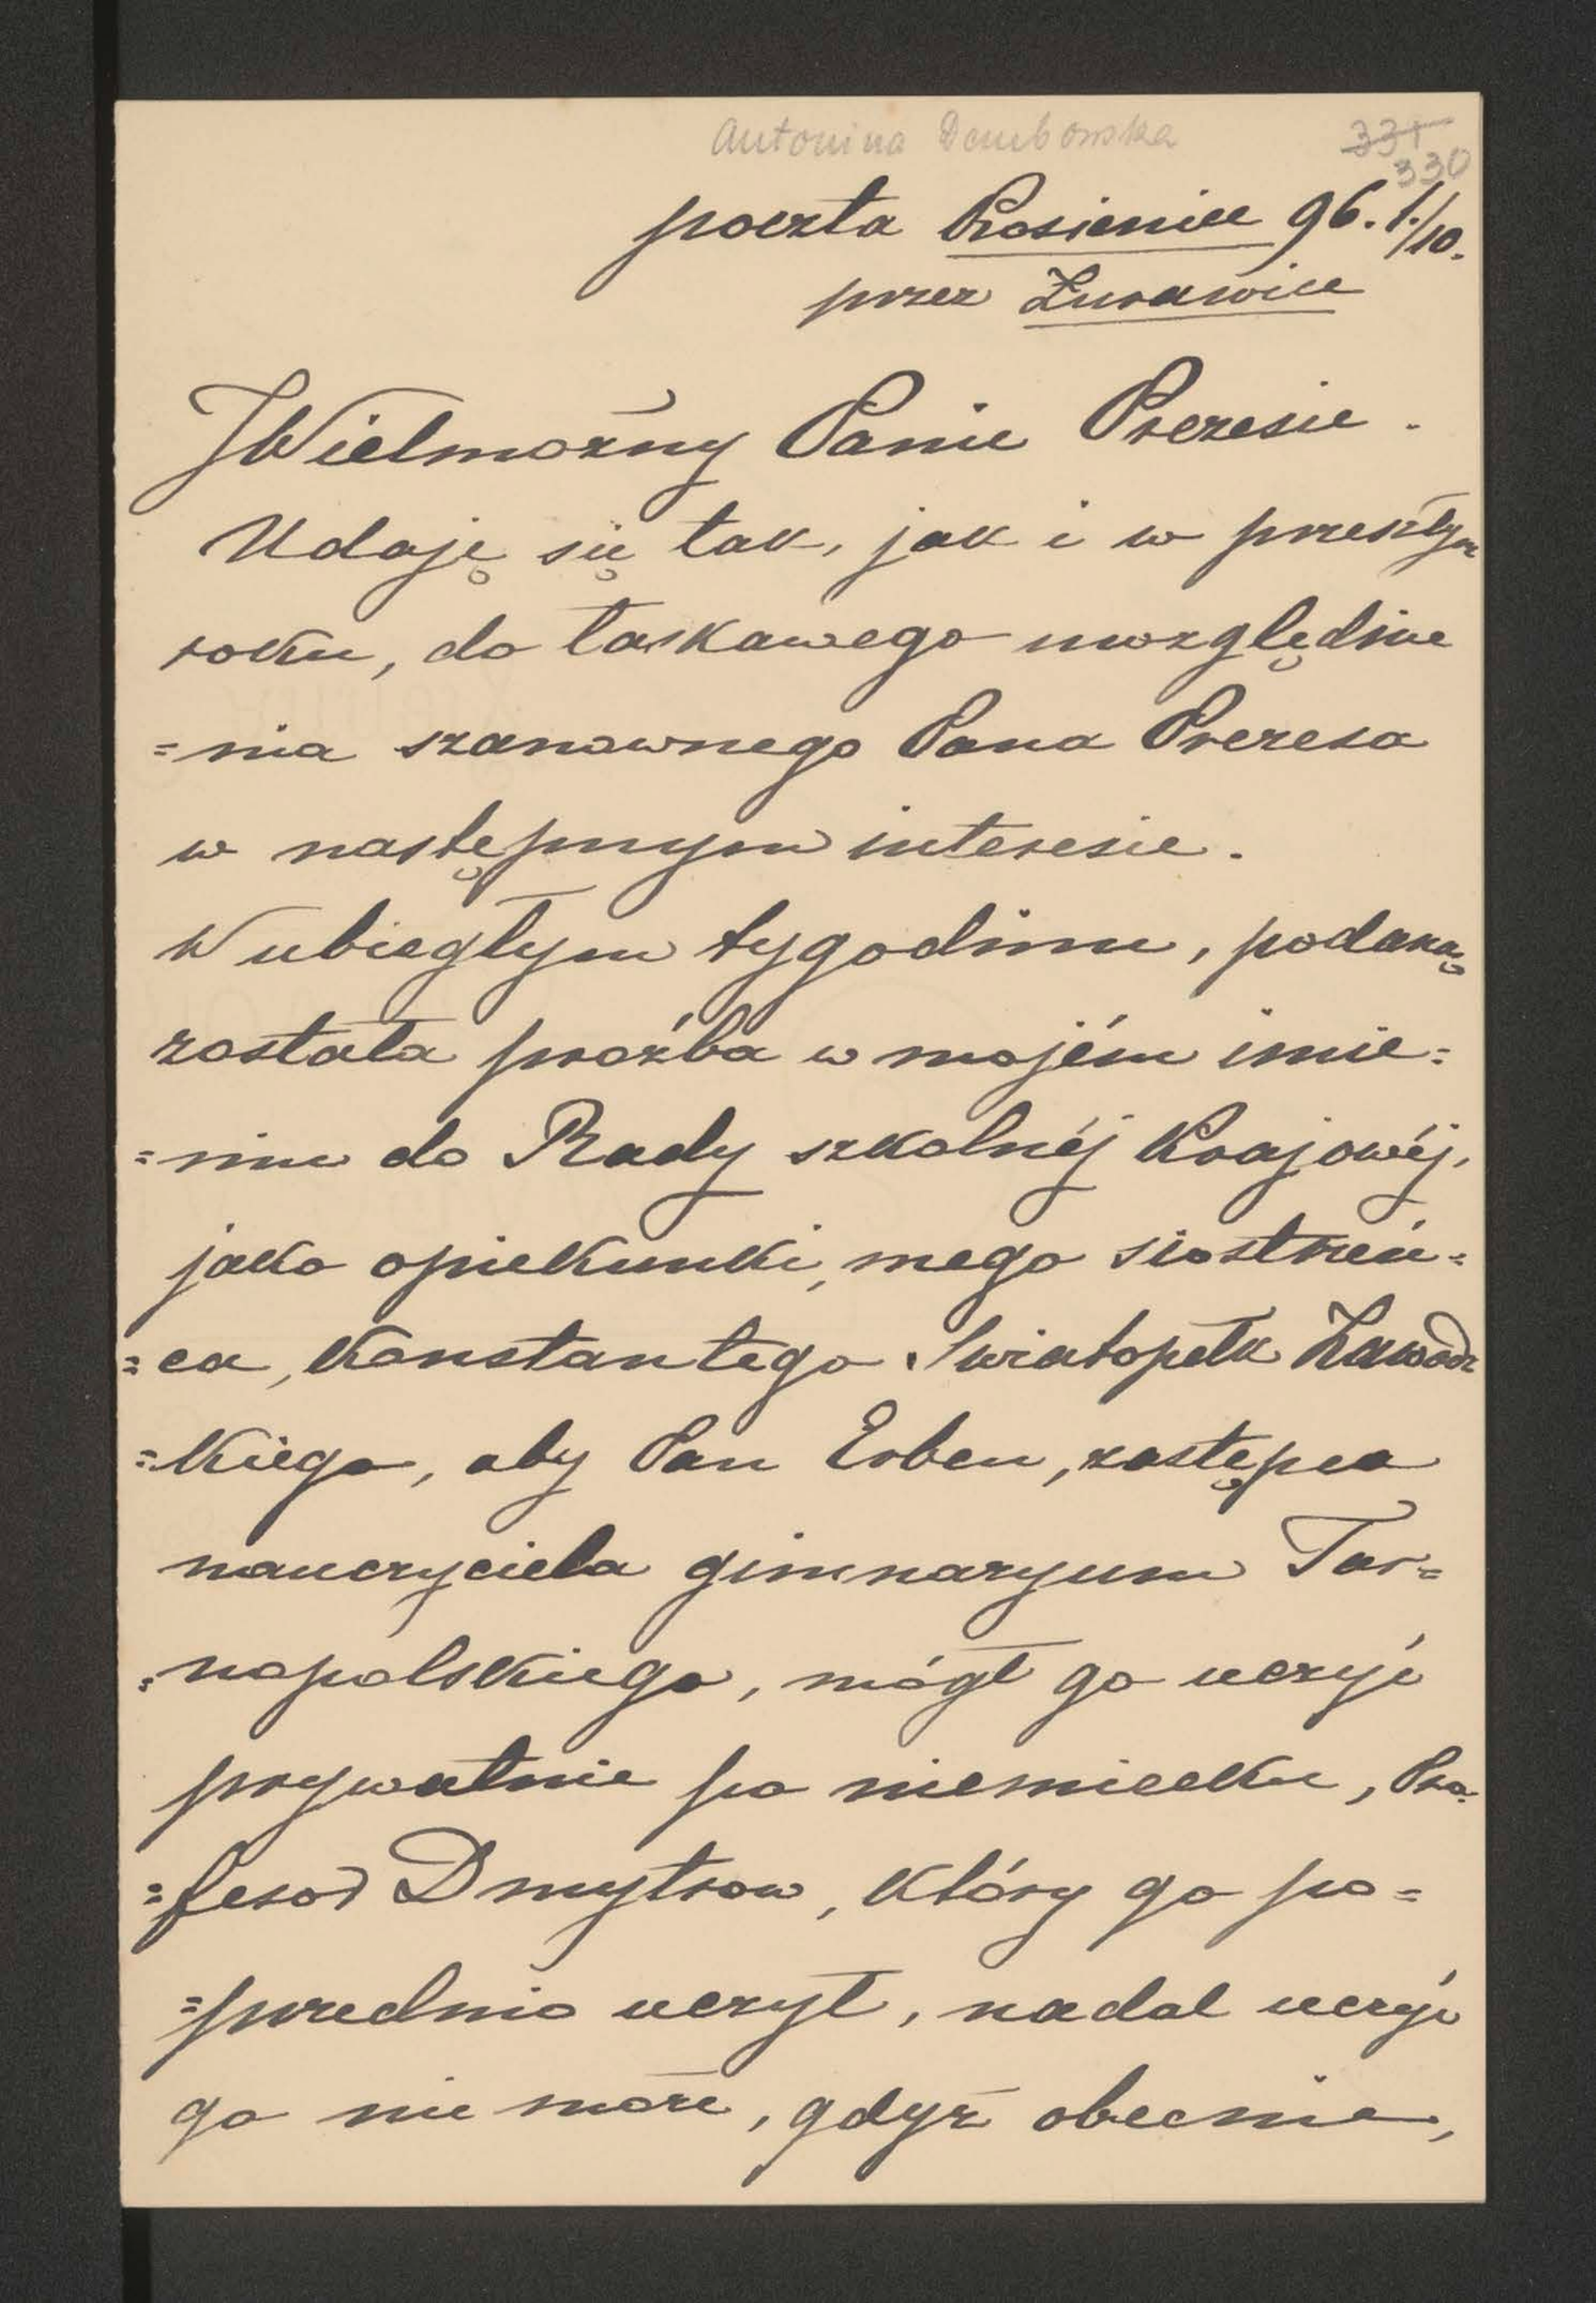 Antonina Dembowska
331
330
poczta Krosienice 96. 1./10.
przez Żurawice
JWielmożny Panie Prezesie.
Udaję się tak, jak i w przeszłym
roku, do łaskawego uwzględnie
=nia szanownego Pana Prezesa
w następnym interesie.
W ubiegłym tygodniu, podaną
została prośba w mojém imie=
=niu do Rady szkolnéj Krajowéj,
jako opiekunki, mego siostrzeń=
=ca, Konstantego Swiatopełk Zawadz
=kiego, aby Pan Erben, zastępca
nauczyciela gimnazyum Tar=
=nopolskiego, mógł go uczyć
prywatnie po niemiecku, Pro=
=fesor Dmytrow, który go po=
=przednio uczył, nadal uczyć
go nie może, gdyż obecnie,